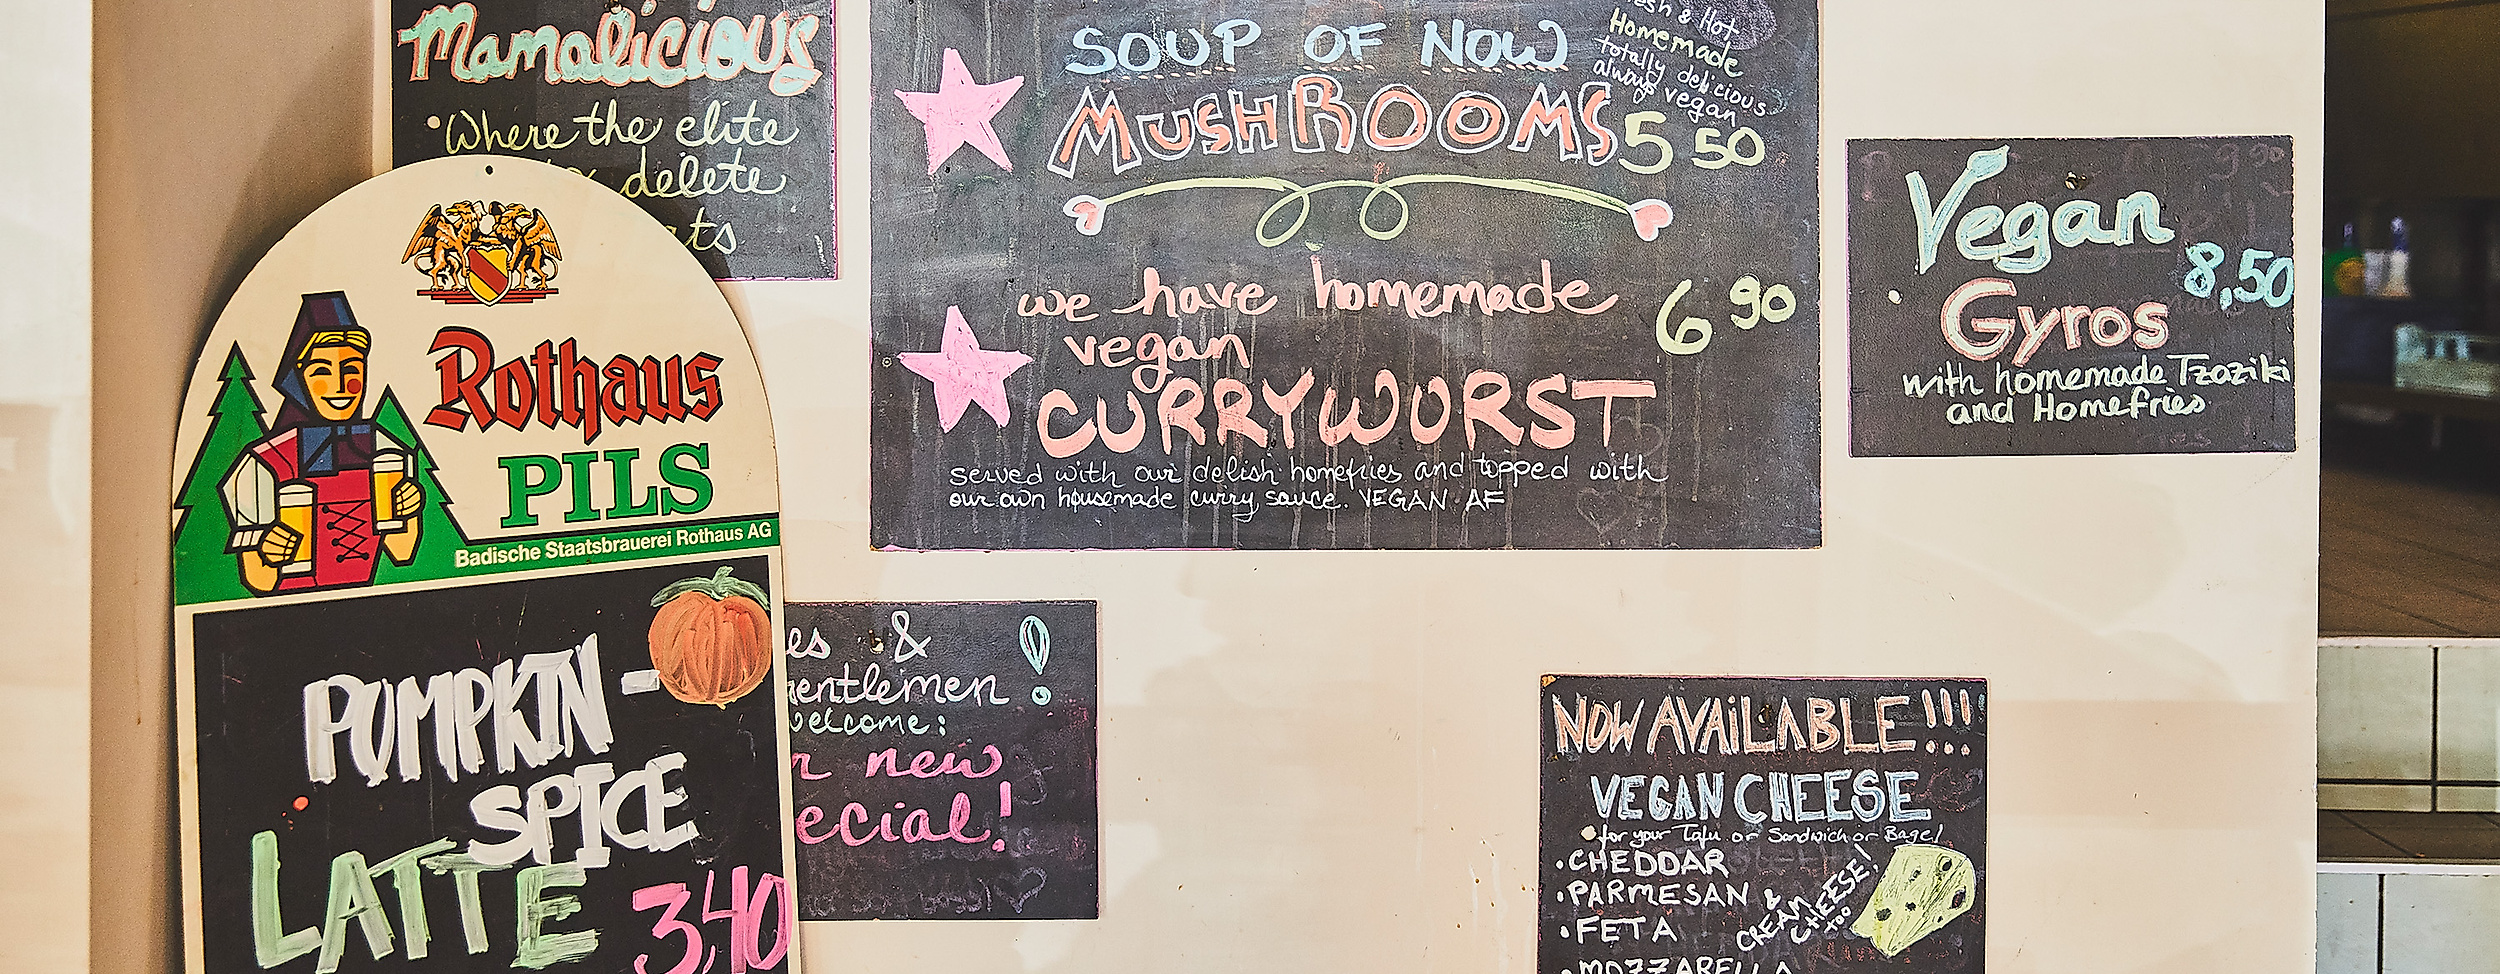 Mamalicious
Where the elite
delete
Rothaus
PILS
Badische Staatsbrauerei Rothaus AG
PUMPKIN-
SPICE
LATTE 3,40
& Hot
Homemade
totally delicious
always vegan
SOUP OF NOW
MUSHROOMS 5 50
we have homemade 6 90
vegan
CURRYWURST
served with our delish homefries and topped with
our own housemade curry sauce. VEGAN AF
Vegan
8,50
Gyros
with homemade Tzaziki
and Homefries
& !
new
NOW AVAILABLE!!!
VEGAN CHEESE
for your Tofu or Sandwich or Bagel
• CHEDDAR
• PARMESAN
• FETA
• MOZZARELLA
& CREAM
CHEESE!
too